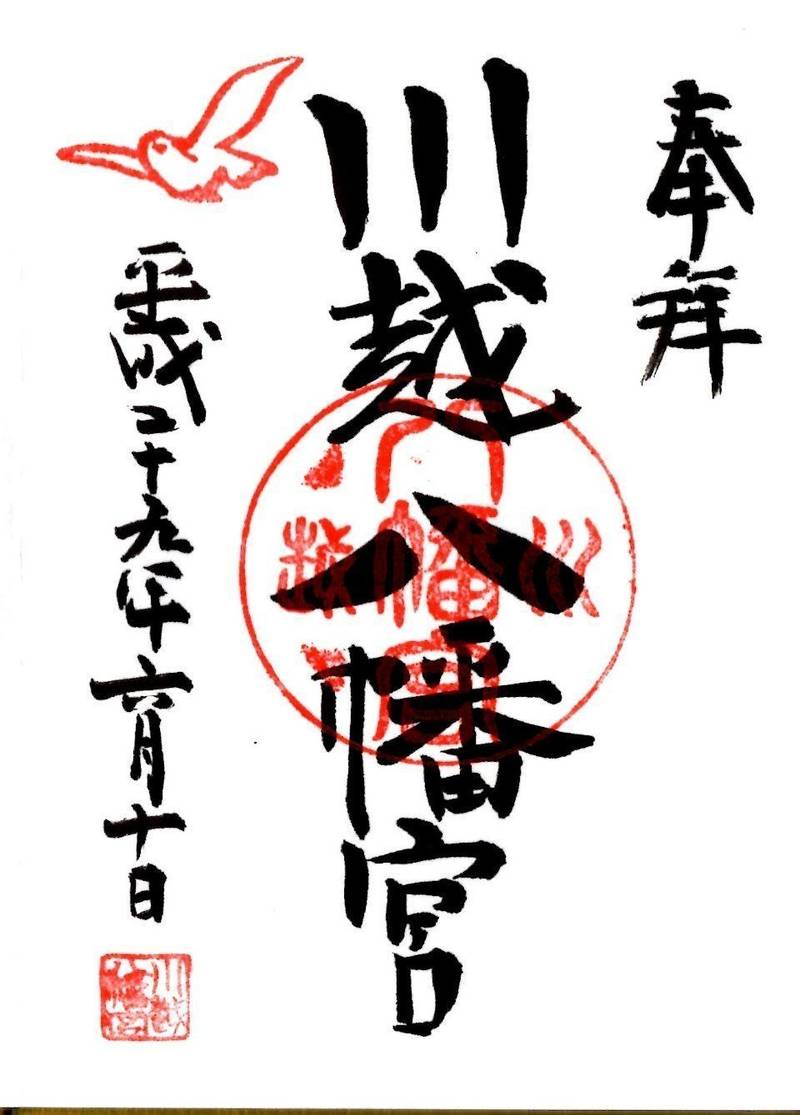 奉拝
川越八幡宮
平成二十九年六月十日
川越
八幡宮
川越
八幡宮